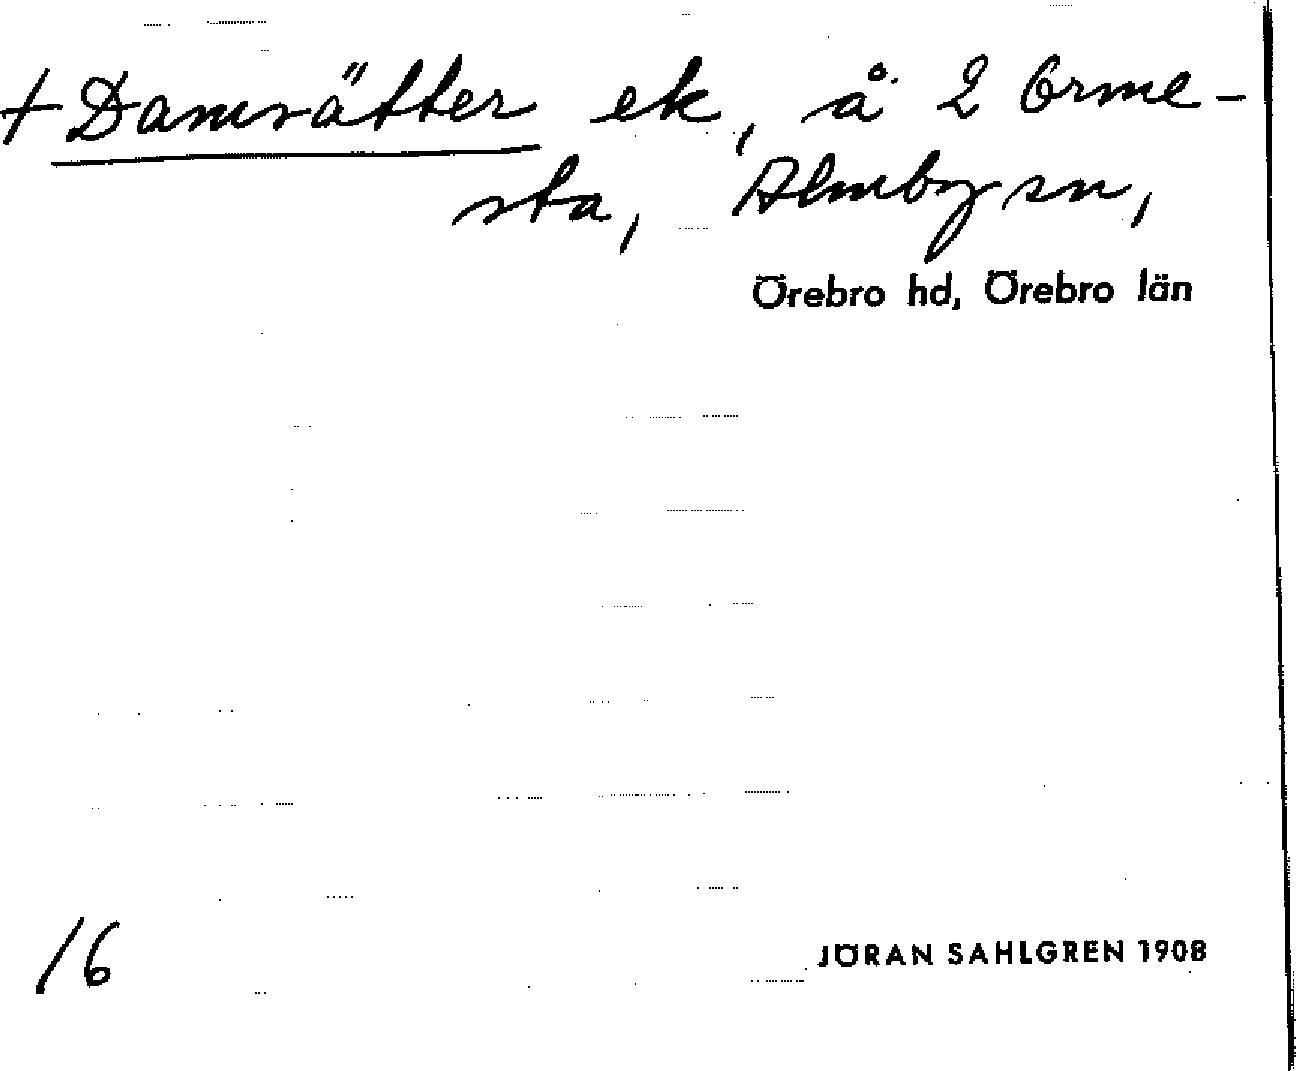 + Damrätter ek, å 2 Orme-
sta, Almby sn,
Örebro hd, Örebro län
16
JÖRAN SAHLGREN 1908